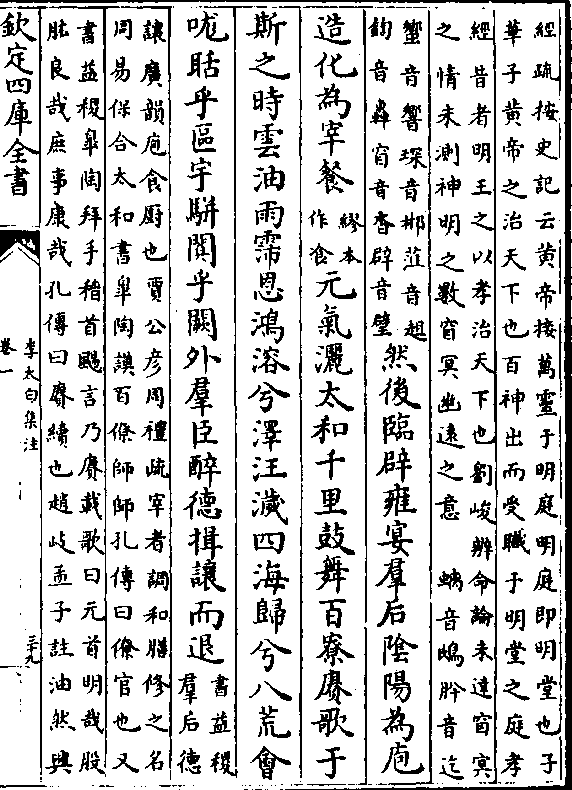 經疏按史記云黄帝接萬靈于明庭明庭即明堂也子
華子黄帝之治天下也百神出而受職于明堂之庭孝
經昔者明王之以孝治天下也劉峻辨命論未達窅冥
之情未測神明之數窅冥幽遠之意 螭音鴟肸音迄
蠁音響琛音郴菹音趄
鈞音轟窅音杳辟音璧
然後臨辟雍宴羣后陰陽為庖
造化為宰餐
繆本
作食
元氣灑太和千里鼓舞百寮賡歌于
斯之時雲油雨霈恩鴻溶兮澤汪濊四海歸兮八荒會
咙聒乎區宇駢闐乎闕外羣臣醉德揖讓而退
書益稷
羣后德
讓廣韻庖食厨也賈公彦周禮疏宰者調和膳修之名
周易保合太和書臯陶謨百僚師師孔傳曰僚官也又
書益稷臯陶拜手稽首颺言乃賡載歌曰元首明哉股
肱良哉庶事康哉孔傳曰賡續也趙岐孟子註油然興
欽定四庫全書
李太白集注
卷一
三十九